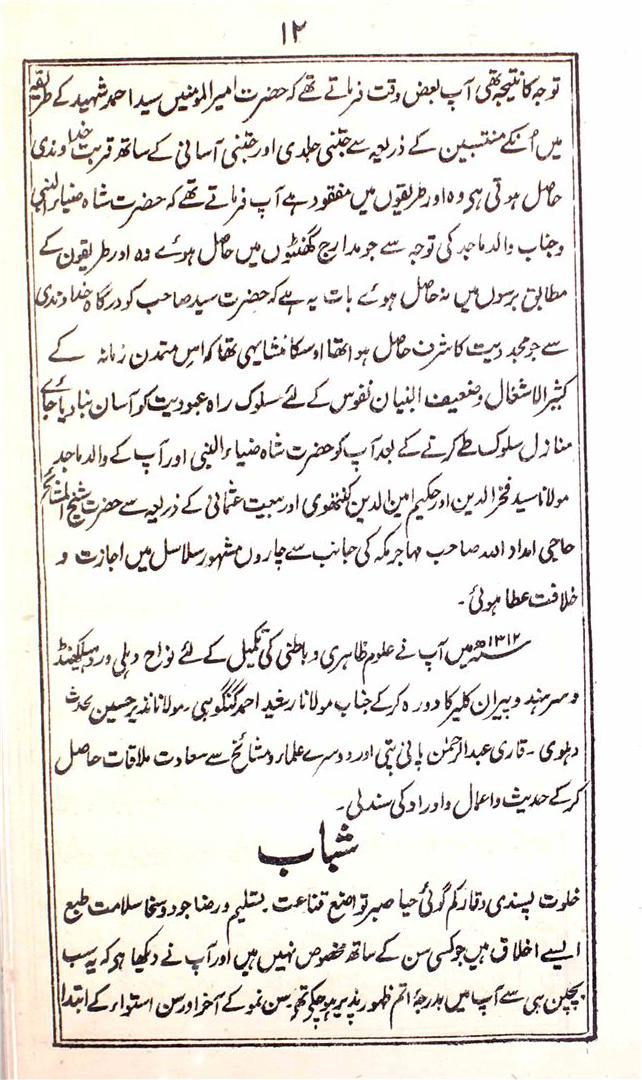 ۱۲
توجہ کا نتیجہ تھی آپ بعض وقت فرماتے تھے کہ حضرت امیر المومنین سید احمد شہید کے طریقہ
میں اُنکے منتسبین کے ذریعہ سے جتنی جلدی اور جتنی آسانی کے ساتھ قربت خداوندی
حاصل ہوتی ہی وہ اور طریقوں میں مفقود ہے آپ فرماتے تھے کہ حضرت شاہ ضیاء النبی
و جناب والد ماجد کی توجہ سے جو مدارج گھنٹوں میں حاصل ہوئے وہ اور طریقون کے
مطابق برسوں میں نہ حاصل ہوئے بات یہ ہے کہ حضرت سید صاحب کو درگاہ خداوندی
سے جو مجددیت کا شرف حاصل ہوا تھا اوسکا منشا یہی تھا کہ اس متمدن زمانہ کے
کثیر الاشغال و ضعیف البنیان نفوس کے لئے سلوک راہ عبودیت کو آسان بنا دیا جائے
منازل سلوک طے کرنے کے بعد آپ کو حضرت شاہ ضیاء النبی اور آپ کے والد ماجد
مولانا سید فخر الدین اور حکیم امین الدین کنتھوی اور معیت عثمانی کے ذریعہ سے حضرت شیخ المشائخ
حاجی امداد اللہ صاحب مہاجر مکہ کی جانب سے چاروں مشہور سلاسل میں اجازت و
خلافت عطا ہوئی ۔
۱۳۱۲ھ میں آپ نے علوم ظاہری و باطنی کی تکمیل کے لئے نواح دہلی و روہیلکھنڈ
و سرہند و پیران کلیر کا دورہ کر کے جناب مولانا رشید احمد گنگوہی ۔ مولانا نذیر حسین محدث
دہلوی ۔ قاری عبد الرحمٰن پانی پتی اور دوسرے علماء و مشائخ سے سعادت ملاقات حاصل
کر کے حدیث و اعمال و اوراد کی سند لی ۔
شباب
خلوت پسندی وقار کم گوئی حیا صبر تواضع قناعت تسلیم و رضا جود و سخا سلامت طبع
ایسے اخلاق ہیں جو کسی سن کے ساتھ مخصوص نہیں ہیں اور آپ نے دیکھا ہو کہ یہ سب
بچپن ہی سے آپ میں بدرجۂ اتم ظہور پذیر ہو چکے تھے سن نمو کے آخر اور سن استواء کے ابتدا